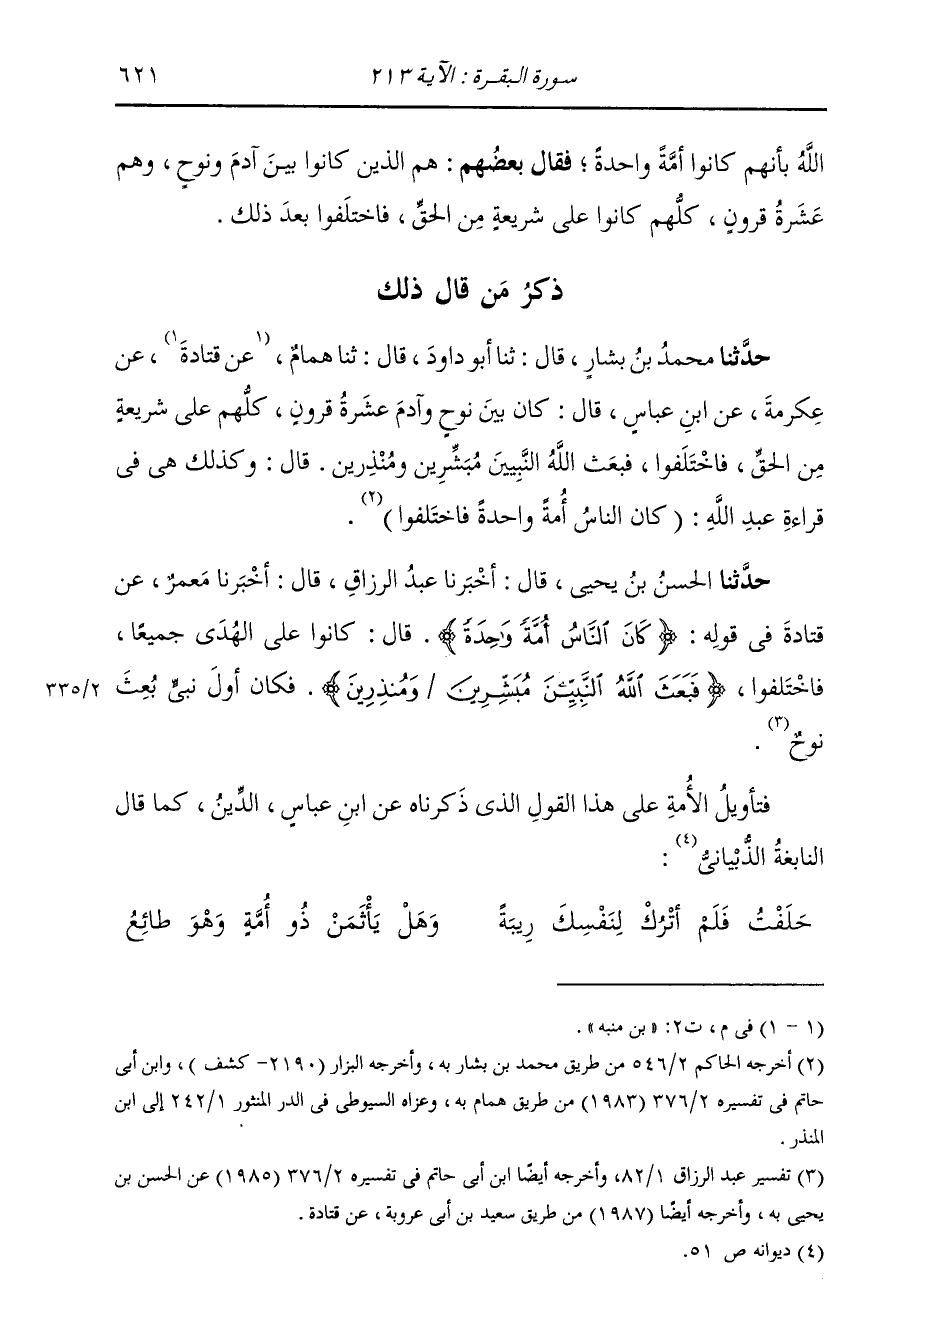 سورة البقرة : الآية ٢١٣ ٦٢١
اللَّهُ بأنهم كانوا أمَّةً واحدةً ؛ فقال بعضُهم : هم الذين كانوا بينَ آدمَ ونوحٍ ، وهم
عَشَرةُ قرونٍ ، كلُّهم كانوا على شريعةٍ مِن الحقِّ ، فاختلَفوا بعدَ ذلك .
ذكرُ مَن قال ذلك
حدَّثنا محمدُ بنُ بشارٍ ، قال : ثنا أبو داودَ ، قال : ثنا همامٌ ، (١عن قتادةَ١) ، عن
عِكرمةَ ، عن ابنِ عباسٍ ، قال : كان بينَ نوحٍ وآدمَ عشَرةُ قرونٍ ، كلُّهم على شريعةٍ
مِن الحقِّ ، فاخْتَلَفوا ، فبعَث اللَّهُ النَّبِيينَ مُبَشِّرِين ومُنْذِرِين . قال : وكذلك هى فى
قراءةِ عبدِ اللَّهِ : ( كان الناسُ أُمةً واحدةً فاختَلفوا )(٢) .
حدَّثنا الحسنُ بنُ يحيى ، قال : أخْبَرنا عبدُ الرزاقِ ، قال : أخْبَرنا مَعمرٌ ، عن
قتادةَ فى قولِه : ﴿ كَانَ ٱلنَّاسُ أُمَّةً وَٰحِدَةً ﴾ . قال : كانوا على الهُدَى جميعًا ،
فاخْتَلفوا ، ﴿ فَبَعَثَ ٱللَّهُ ٱلنَّبِيِّـۧنَ مُبَشِّرِينَ / وَمُنذِرِينَ ﴾ . فكان أولَ نبىٍّ بُعِثَ ٣٣٥/٢
نوحٌ(٣) .
فتأويلُ الأُمةِ على هذا القولِ الذى ذَكرناه عن ابنِ عباسٍ ، الدِّينُ ، كما قال
النابغةُ الذُّبْيانىُّ(٤) :
حَلَفْتُ فَلَمْ أتْرُكْ لِنَفْسِكَ رِيبَةً وَهَلْ يَأْثَمَنْ ذُو أُمَّةٍ وَهْوَ طائِعُ
(١ - ١) فى م ، ت٢: « بن منبه » .
(٢) أخرجه الحاكم ٥٤٦/٢ من طريق محمد بن بشار به ، وأخرجه البزار (٢١٩٠- كشف ) ، وابن أبى
حاتم فى تفسيره ٣٧٦/٢ (١٩٨٣) من طريق همام به ، وعزاه السيوطى فى الدر المنثور ٢٤٢/١ إلى ابن
المنذر .
(٣) تفسير عبد الرزاق ٨٢/١، وأخرجه أيضًا ابن أبى حاتم فى تفسيره ٣٧٦/٢ (١٩٨٥) عن الحسن بن
يحيى به ، وأخرجه أيضًا (١٩٨٧) من طريق سعيد بن أبى عروبة ، عن قتادة .
(٤) ديوانه ص ٥١.